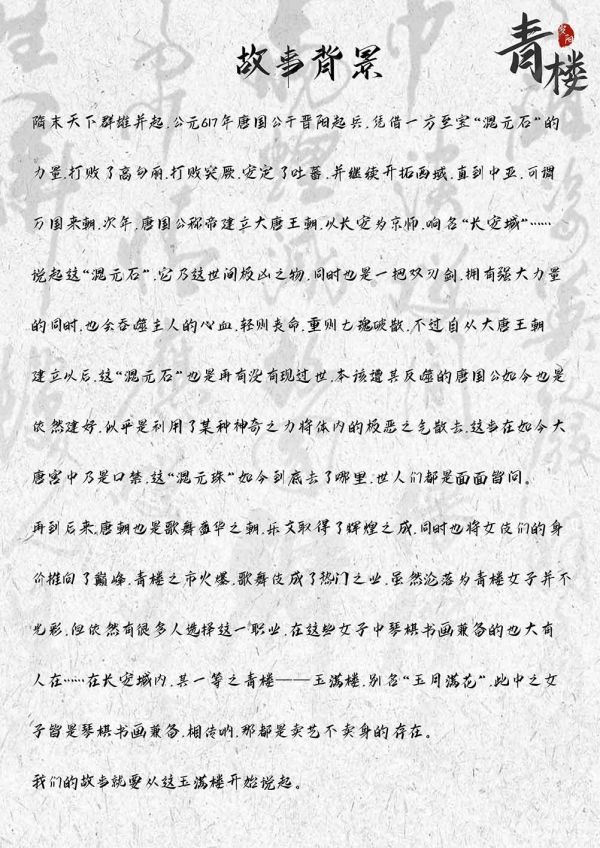 故事背景
青楼
隋末天下群雄并起,公元617年唐国公于晋阳起兵,凭借一方至宝“混元石”的
力量,打败了高句丽,打败突厥,安定了吐蕃,并继续开拓西域,直到中亚,可谓
万国来朝,次年,唐国公称帝建立大唐王朝,以长安为京师,响名“长安城”……
说起这“混元石”,它乃这世间极凶之物,同时也是一把双刃剑,拥有强大力量
的同时,也会吞噬主人的心血,轻则丧命,重则七魂破散,不过自从大唐王朝
建立以后,这“混元石”也是再有没有现过世,本该遭其反噬的唐国公如今也是
依然建好,似乎是利用了某种神奇之力将体内的极恶之气散去,这事在如今大
唐宫中乃是口禁,这“混元珠”如今到底去了哪里,世人们都是面面皆问。
再到后来,唐朝也是歌舞盛华之朝,乐文取得了辉煌之成,同时也将女伎们的身
价推向了巅峰,青楼之市火爆,歌舞伎成了热门之业,虽然沦落为青楼女子并不
光彩,但依然有很多人选择这一职业,在这些女子中琴棋书画兼备的也大有
人在……在长安城内,其一等之青楼——玉满楼,别名“玉月满花”,此中之女
子皆是琴棋书画兼备,相传呐,那都是卖艺不卖身的存在。
我们的故事就要从这玉满楼开始说起。